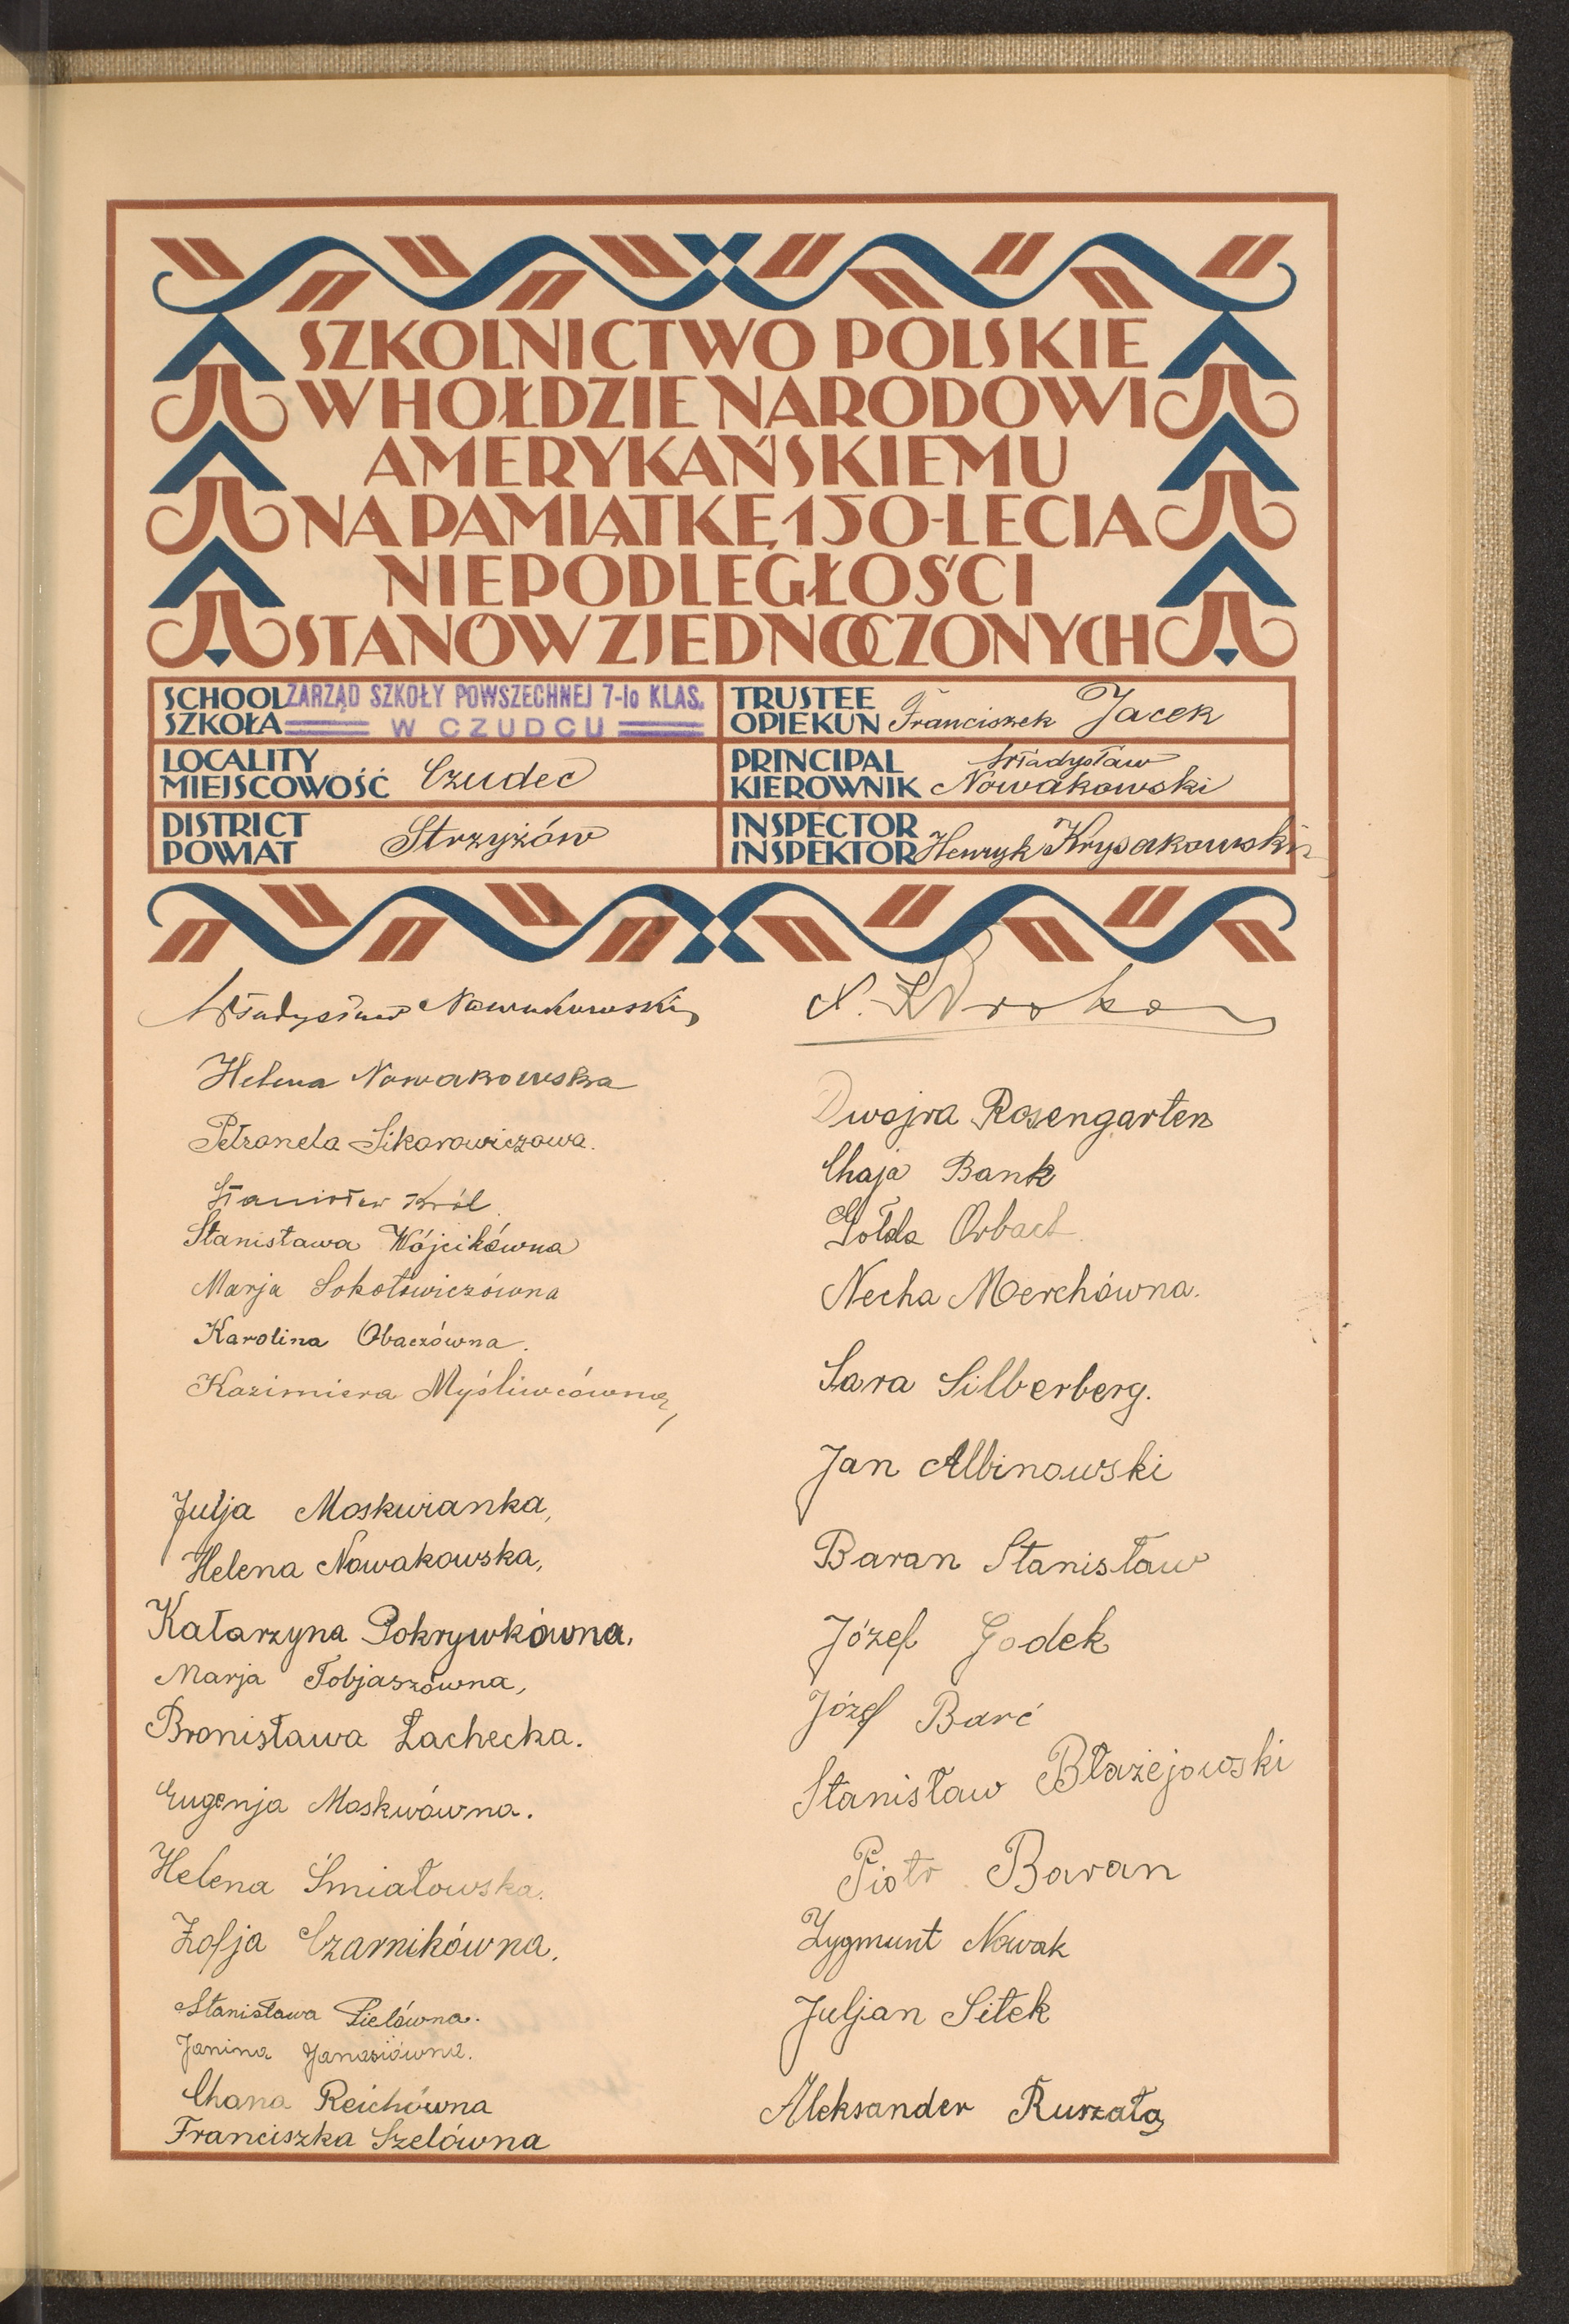 SZKOLNICTWO POLSKIE
W HOŁDZIE NARODOWI
AMERYKAŃSKIEMU
NA PAMIĄTKĘ 150-LECIA
NIEPODLEGŁOŚCI
STANÓW ZJEDNOCZONYCH
SCHOOL
SZKOŁA
ZARZĄD SZKOŁY POWSZECHNEJ 7-IO KLAS.
W CZUDCU
TRUSTEE
OPIEKUN Franciszek Jacek
LOCALITY
MIEJSCOWOŚĆ Czudec
PRINCIPAL Władysław
KIEROWNIK Nowakowski
DISTRICT
POWIAT Strzyżów
INSPECTOR
INSPEKTOR Henryk Krysakowski
Władysław Nowakowski
Helena Nowakowska
Petronela Sikorowiczowa.
Stanisław Król
Stanisława Wójcikówna
Marja Sokołowiczówna
Karolina Obaczówna.
Kazimiera Myśliwcówna,
Julja Moskwianka,
Helena Nowakowska,
Katarzyna Pokrywkówna.
Marja Tobjaszówna,
Bronisława Łachecka.
Eugenja Moskwówna.
Helena Śmiałowska.
Zofja Czarnikówna.
Stanisława Pielówna.
Janina Janasiówna.
Chana Reichówna
Franciszka Szelówna
Dwojra Rosengarten
Chaja Bank
Gołda Orbach
Necha Merchówna.
Sara Silberberg.
Jan Albinowski
Baran Stanisław
Józef Godek
Józef Barć
Stanisław Błażejowski
Piotr Baran
Zygmunt Nowak
Juljan Sitek
Aleksander Ruszała